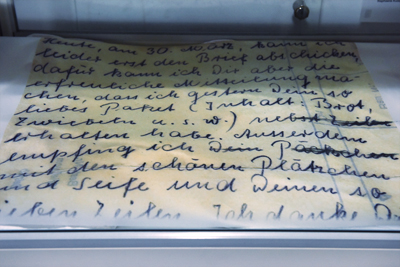 Heute, am 30. März, kann ich
leider erst den Brief abschicken,
dafür kann ich Dir aber die
erfreuliche Mitteilung ma-
chen, dass ich gestern Dein so
liebes Paket (Inhalt Brot,
Zwiebeln u.s.w.) nebst Zeilen
erhalten habe. Ausserdem
empfing ich Dein Päckchen
mit den schönen Plätzchen
und Seife und Deinen so
lieben Zeilen. Ich danke D